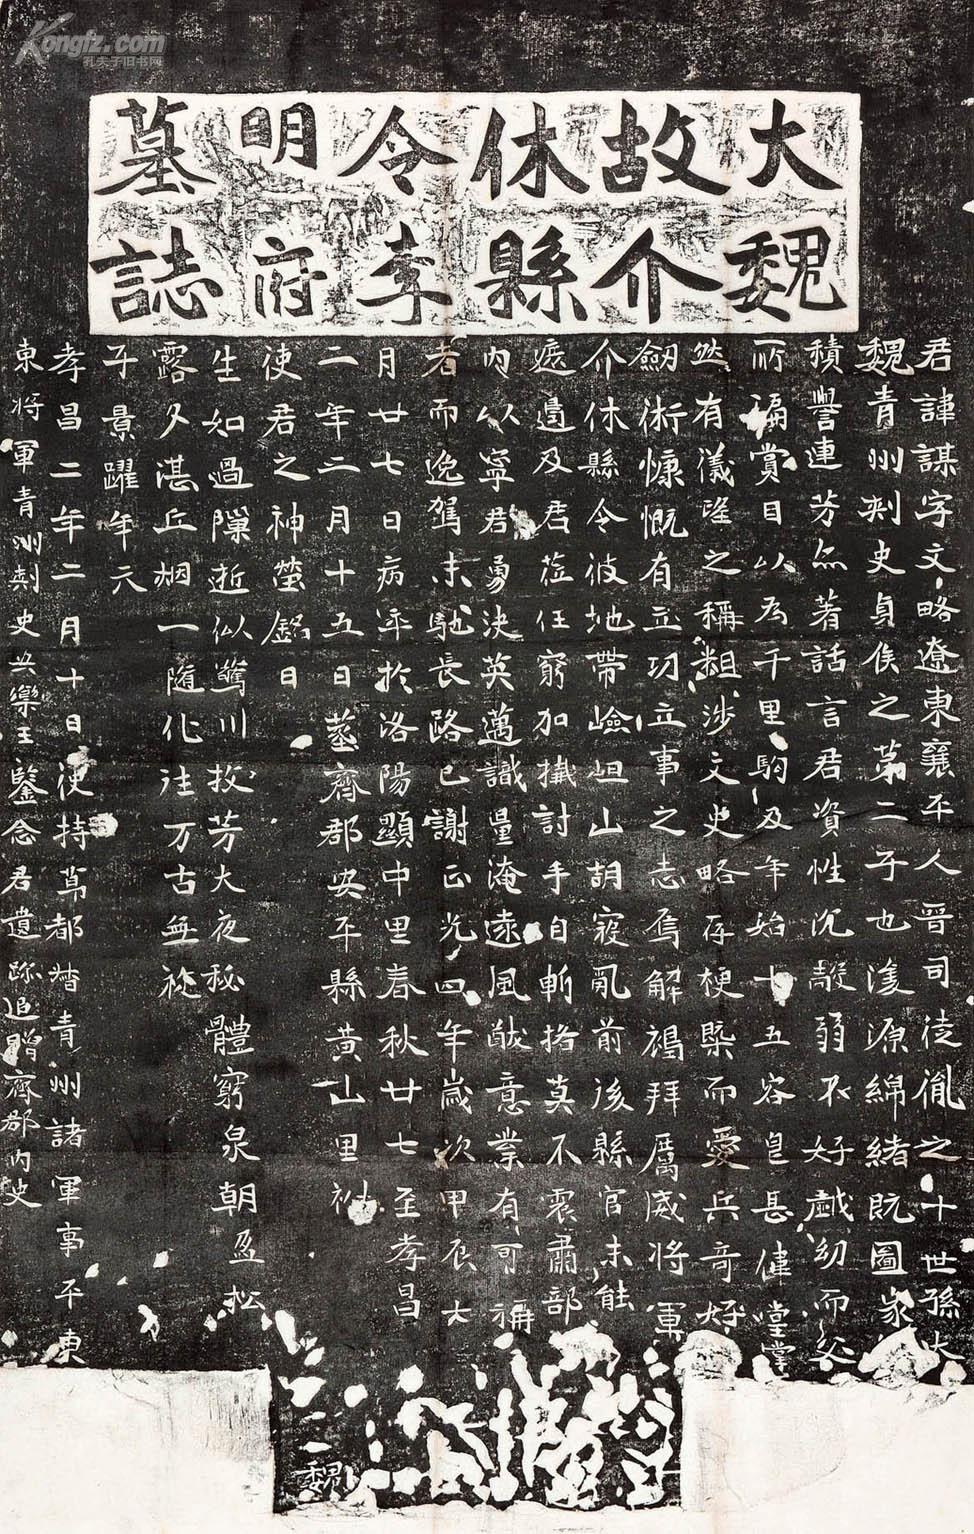 Kongfz.com
孔夫子旧书网
大魏
故介
休縣
令李
明府
墓誌
君諱謀字文略遼東襄平人晉司徒胤之十世孫大
魏青州刺史貞侯之第二子也濬源綿緒既圖家
積譽連芳亦著話言君資性沉毅弱不好戲幼而父
所徧賞目以為千里駒及年始十五容皃甚偉堂堂
然有儀望之稱粗涉文史略存梗槩而愛兵奇好
劒術慷慨有立功立事之志焉解褐拜厲威將軍
介休縣令彼地帶嶮岨山胡寇亂前後縣官未能
遮邊及君莅任窮加擒討手自斬挌莫不震肅部
內以寧君勇決英邁識量淹遠風猷意業有可稱
者而逸駕未馳長路已謝正光四年歲次甲辰大
月廿七日病卒於洛陽顯中里春秋廿七至孝昌
二年二月十五日葬齊郡安平縣黃山里祔
使君之神塋銘曰
生如過隟逝似驚川攸芳大夜秘體窮泉朝盈松
露夕湛丘烟一隨化往万古無旋
子景躍年六
孝昌二年二月十日使持節都督青州諸軍事平東
東將軍青州刺史安樂王鑒念君遺跡追贈齊郡內史
魏